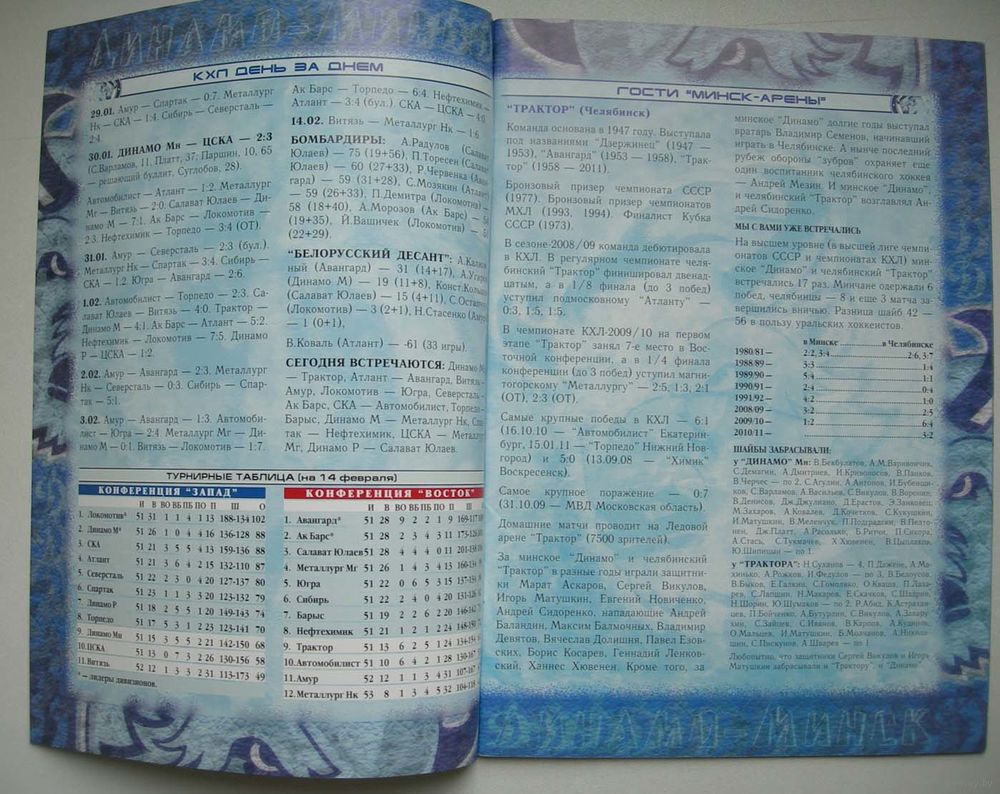 ДИНАМО-МИНСК
КХЛ ДЕНЬ ЗА ДНЕМ
29.01. Амур — Спартак — 0:7. Металлург
Нк — СКА — 1:4. Сибирь — Северсталь —
2:4
30.01. ДИНАМО Мн — ЦСКА — 2:3
(С.Варламов, 11, Платт, 37; Паршин, 10, 65
— решающий буллит, Суглобов, 28).
Автомобилист — Атлант — 1:2. Металлург
Мг — Витязь — 2:0. Салават Юлаев — Ди-
намо М — 7:1. Ак Барс — Локомотив —
2:3. Нефтехимик — Торпедо — 3:4 (ОТ).
31.01. Амур — Северсталь — 2:3 (бул.).
Металлург Нк — Спартак — 3:4. Сибирь —
СКА — 1:2. Югра — Авангард — 2:6.
1.02. Автомобилист — Торпедо — 2:3. Са-
лават Юлаев — Витязь — 4:0. Трактор —
Динамо М — 4:1. Ак Барс — Атлант — 5:2.
Нефтехимик — Локомотив — 7:5. Динамо
Р — ЦСКА — 1:2.
2.02. Амур — Авангард — 2:3. Металлург
Нк — Северсталь — 0:3. Сибирь — Спар-
так — 5:1.
3.02. Амур — Авангард — 1:3. Автомоби-
лист — Югра — 2:4. Металлург Мг — Ди-
намо М — 0:1. Витязь — Локомотив — 1:7.
Ак Барс — Торпедо — 6:4. Нефтехимик —
Атлант — 3:4 (бул.). СКА — ЦСКА — 4:0
14.02. Витязь — Металлург Нк — 1:6
БОМБАРДИРЫ: А.Радулов (Салават
Юлаев) — 75 (19+56), П.Торесен (Салават
Юлаев) — 60 (27+33), Р.Червенка (Аван-
гард) — 59 (31+28), С.Мозякин (Атлант)
— 59 (26+33), П.Демитра (Локомотив) —
58 (18+40), А.Морозов (Ак Барс) —
(19+35), Й.Вашичек (Локомотив) —
(22+29).
"БЕЛОРУССКИЙ ДЕСАНТ":
ный (Авангард) — 31 (14+17),
(Динамо М) — 19 (11+8), Конст.
(Салават Юлаев) — 15 (4+11),
(Локомотив) — 3 (2+1), Н.Стасенко (Амур)
— 1 (0+1),
В.Коваль (Атлант) — -61 (33 игры).
СЕГОДНЯ ВСТРЕЧАЮТСЯ: Динамо Мн
— Трактор, Атлант — Авангард, Витязь —
Амур, Локомотив — Югра, Северсталь —
Ак Барс, СКА — Автомобилист, Торпедо —
Барыс, Динамо М — Металлург Нк, Спар-
так — Нефтехимик, ЦСКА — Металлург
Мг, Динамо Р — Салават Юлаев.
ТУРНИРНЫЕ ТАБЛИЦА (на 14 февраля)
КОНФЕРЕНЦИЯ "ЗАПАД"
И В ВО ВБ ПБ ПО П Ш О
1. Локомотив* 51 31 1 1 4 1 13 188-134 102
2. Динамо М* 51 26 1 0 4 4 16 136-128 88
3. СКА 51 21 3 5 5 4 13 159-136 88
4. Атлант 51 21 3 6 4 2 15 132-110 87
5. Северсталь 51 22 2 3 0 4 20 127-137 80
6. Спартак 51 23 1 1 3 3 20 123-132 79
7. Динамо Р 51 18 2 5 5 1 20 149-143 74
8. Торпедо 51 17 5 3 1 2 23 123-141 70
9. Динамо Мн 51 15 3 5 5 2 21 142-150 68
10.ЦСКА 51 13 0 7 3 2 26 130-156 58
11.Витязь 52 12 1 3 3 2 31 113-173 49
* — лидеры дивизионов.
КОНФЕРЕНЦИЯ "ВОСТОК"
И В ВО ВБ ПБ ПО П Ш
1. Авангард* 51 28 9 2 2 1 9
2. Ак Барс* 51 28 2 3 4 3 11
3. Салават Юлаев 51 28 4 4 4 0 11
4. Металлург Мг 51 26 1 4 3 4 13
5. Югра 51 22 0 6 5 3 15
6. Сибирь 51 22 2 4 0 4 20
7. Барыс 51 19 2 2 6 2 20
8. Нефтехимик 51 21 1 2 1 2 24
9. Трактор 51 13 6 2 5 1 24
10.Автомобилист 51 10 6 4 2 1 28
11.Амур 52 12 1 1 3 4 31
12.Металлург Нк 53 8 1 3 4 5 32
ГОСТИ "МИНСК-АРЕНЫ"
"ТРАКТОР" (Челябинск)
Команда основана в 1947 году. Выступала
под названиями "Дзержинец" (1947 —
1953), "Авангард" (1953 — 1958), "Трак-
тор" (1958 — 2011).
Бронзовый призер чемпионата СССР
(1977). Бронзовый призер чемпионатов
МХЛ (1993, 1994). Финалист Кубка
СССР (1973).
В сезоне-2008/09 команда дебютировала
в КХЛ. В регулярном чемпионате челя-
бинский "Трактор" финишировал двенад-
цатым, а в 1/8 финала (до 3 побед)
уступил подмосковному "Атланту" —
0:3, 1:5, 1:5.
В чемпионате КХЛ-2009/10 на первом
этапе "Трактор" занял 7-е место в Вос-
точной конференции, а в 1/4 финала
конференции (до 3 побед) уступил магни-
тогорскому "Металлургу" — 2:5, 1:3, 2:1
(ОТ), 2:3 (ОТ).
Самые крупные победы в КХЛ — 6:1
(16.10.10 — "Автомобилист" Екатерин-
бург, 15.01.11 — "Торпедо" Нижний Нов-
город) и 5:0 (13.09.08 — "Химик"
Воскресенск).
Самое крупное поражение — 0:7
(31.10.09 — МВД Московская область).
Домашние матчи проводит на Ледовой
арене "Трактор" (7500 зрителей).
За минское "Динамо" и челябинский
"Трактор" в разные годы играли защитни-
ки Марат Аскаров, Сергей Викулов,
Игорь Матушкин, Евгений Новиченко,
Андрей Сидоренко, нападающие Андрей
Баландин, Максим Балмочных, Владимир
Девятов, Вячеслав Долишня, Павел Езов-
ских, Борис Косарев, Геннадий Ленков-
ский, Ханнес Хювенен. Кроме того, за
минское "Динамо" долгие годы выступал
вратарь Владимир Семенов, начинавший
играть в Челябинске. А нынче последний
рубеж обороны "зубров" охраняет еще
один воспитанник челябинского хоккея
— Андрей Мезин. И минское "Динамо",
и челябинский "Трактор" возглавлял Ан-
дрей Сидоренко.
МЫ С ВАМИ УЖЕ ВСТРЕЧАЛИСЬ
На высшем уровне (в высшей лиге чемпи-
онатов СССР и чемпионатах КХЛ) мин-
ское "Динамо" и челябинский "Трактор"
встречались 17 раз. Минчане одержали 6
побед, челябинцы — 8 и еще 3 матча за-
вершились вничью. Разница шайб 42 —
56 в пользу уральских хоккеистов.
в Минске в Челябинске
1980/81 — 2:2, 3:4 2:6, 3:7
1988/89 — 3:3 1:4
1989/90 — 5:4 1:1
1990/91 — 2:4 0:4
1991/92 — 4:2 1:0
2008/09 — 3:2 2:5
2009/10 — 1:2 6:4
2010/11 — 3:2
ШАЙБЫ ЗАБРАСЫВАЛИ:
у "ДИНАМО" Мн: В.Бекбулатов, А.М.Варивончик,
С.Демагин, А.Дмитриев, И.Криволосов, В.Панков,
В.Черчес — по 2, С.Агулин, А.Антонов, И.Бубенщи-
ков, С.Варламов, А.Васильев, С.Викулов, В.Воронин,
В.Денисов, Дж.Джулиано, Д.Ерастов, Э.Занковец,
М.Захаров, А.Ковалев, Д.Кочетков, С.Кукушкин,
И.Матушкин, В.Меленчук, П.Подградски, В.Пелто-
нен, Дж.Платт, А.Расолько, Б.Ритчи, П.Сикора,
А.Стась, С.Тукмачев, Х.Хювенен, В.Цыплаков,
Ю.Шипицын — по 1.
у "ТРАКТОРА": Н.Суханов — 4, П.Дажене, А.Ма-
хинько, А.Рожков, И.Федулов — по 3, В.Белоусов,
В.Быков, Е.Галкин, С.Гомоляко, О.Кваша, П.Лаза-
рев, С.Лапшин, Н.Макаров, Е.Скачков, С.Шадрин,
Н.Шорин, Ю.Шумаков — по 2,
С.Зайцев, С.Иванов, В.Карпов,
О.Мальцев, И.Матушкин, В.Молчанов,
С.Пискунов, А.Шварев — по 1.
Любопытно, что защитники Сергей Викулов и Игорь
Матушкин забрасывали и "Трактору", и "Динамо".
ДИНАМО-МИНСК